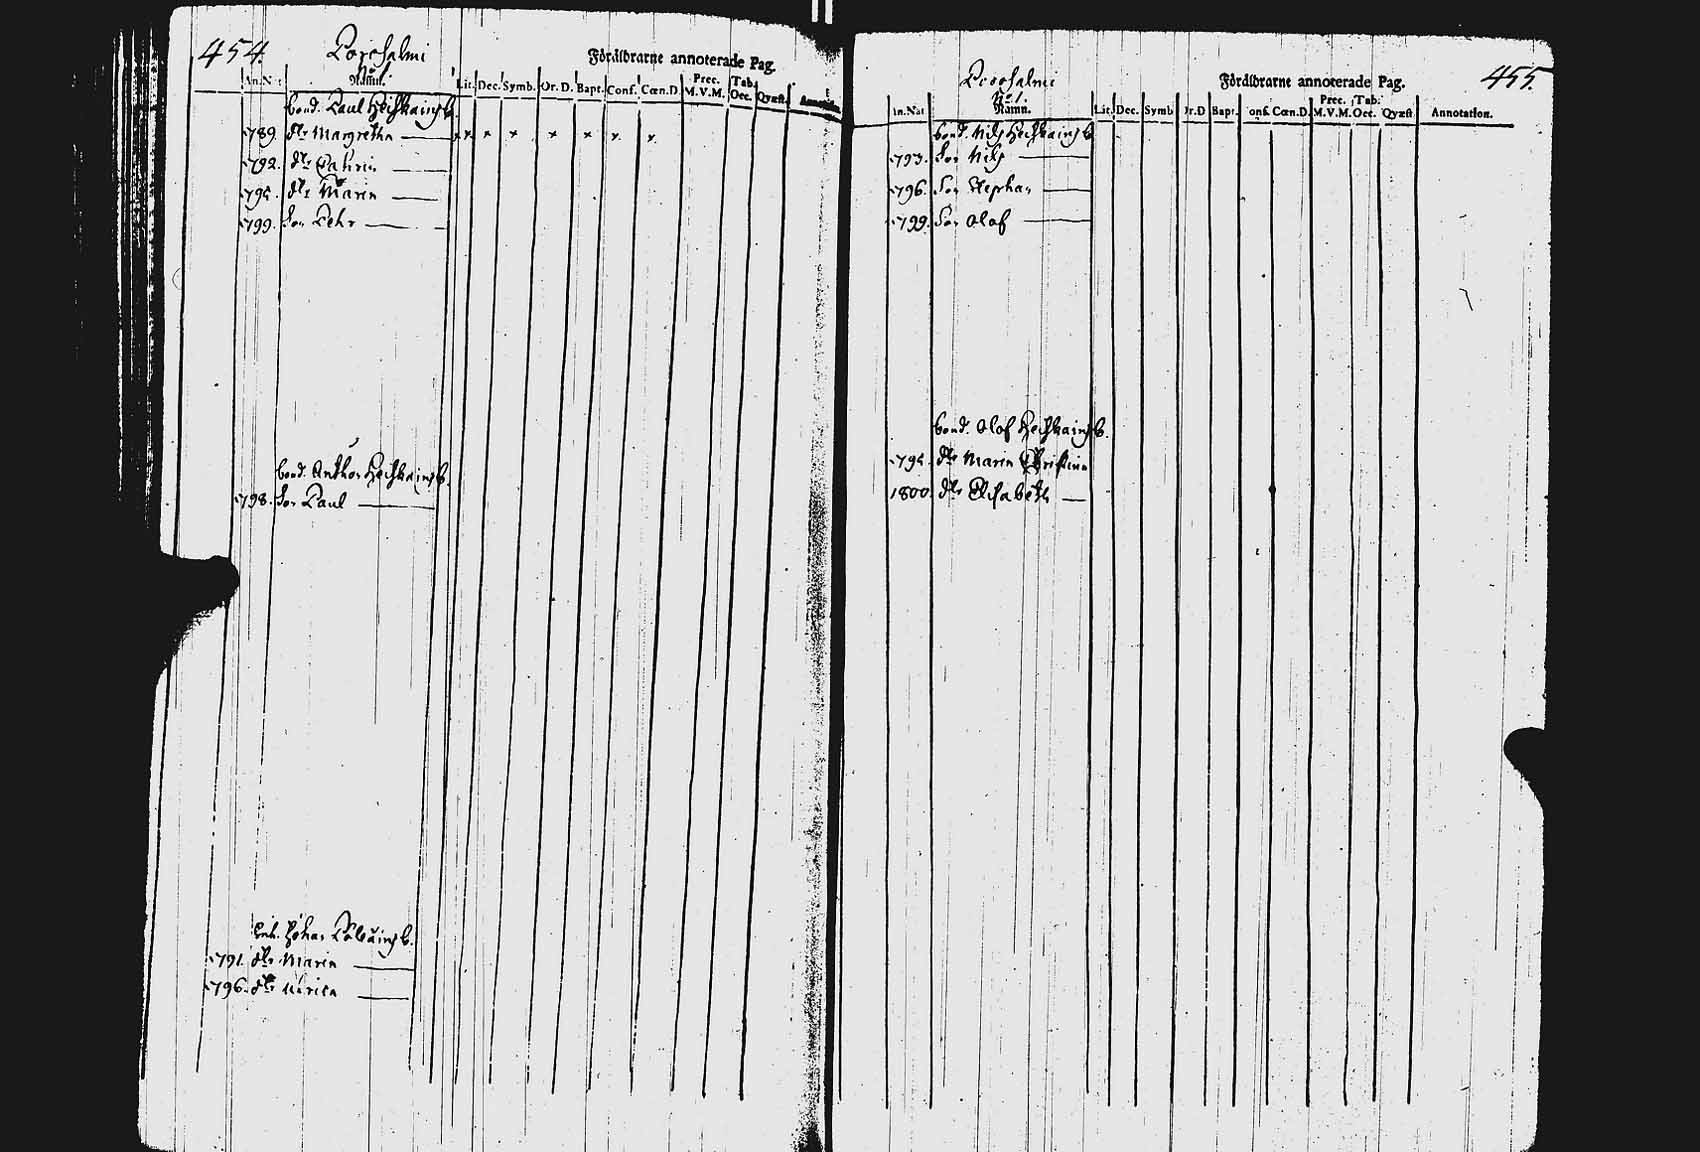 454.
Porosalmi
N:o 1.
Föräldrarne annoterade Pag.
An.Nat Namn. Lit. Dec. Symb. Or.D. Bapt. Conf. Cœn.D. Prec. M.V.M. Tab. Oec. Quæst. Annotation.
bond. Paul Heiskains b.
1789. dtr Margretha x x x x x x x x
1792. dtr Cathrin
1795. dtr Maria
1799. Son Pehr
bond. Anthon Heiskains b.
1798. Son Paul
Inh. Johan b.
1791. dtr Maria
1796. dtr
455.
Porosalmi
N:o 1.
Föräldrarne annoterade Pag.
An.Nat Namn. Lit. Dec. Symb Or.D Bapt. Conf. Cœn.D. Prec. M.V.M. Tab. Oec. Quæst. Annotation.
bond. Nils Heiskains b.
1793. Son Nils
1796. Son Stephan
1799. Son Olof
bond. Olof Heiskains b.
1795. dtr Maria Christina
1800. dtr Elisabeth